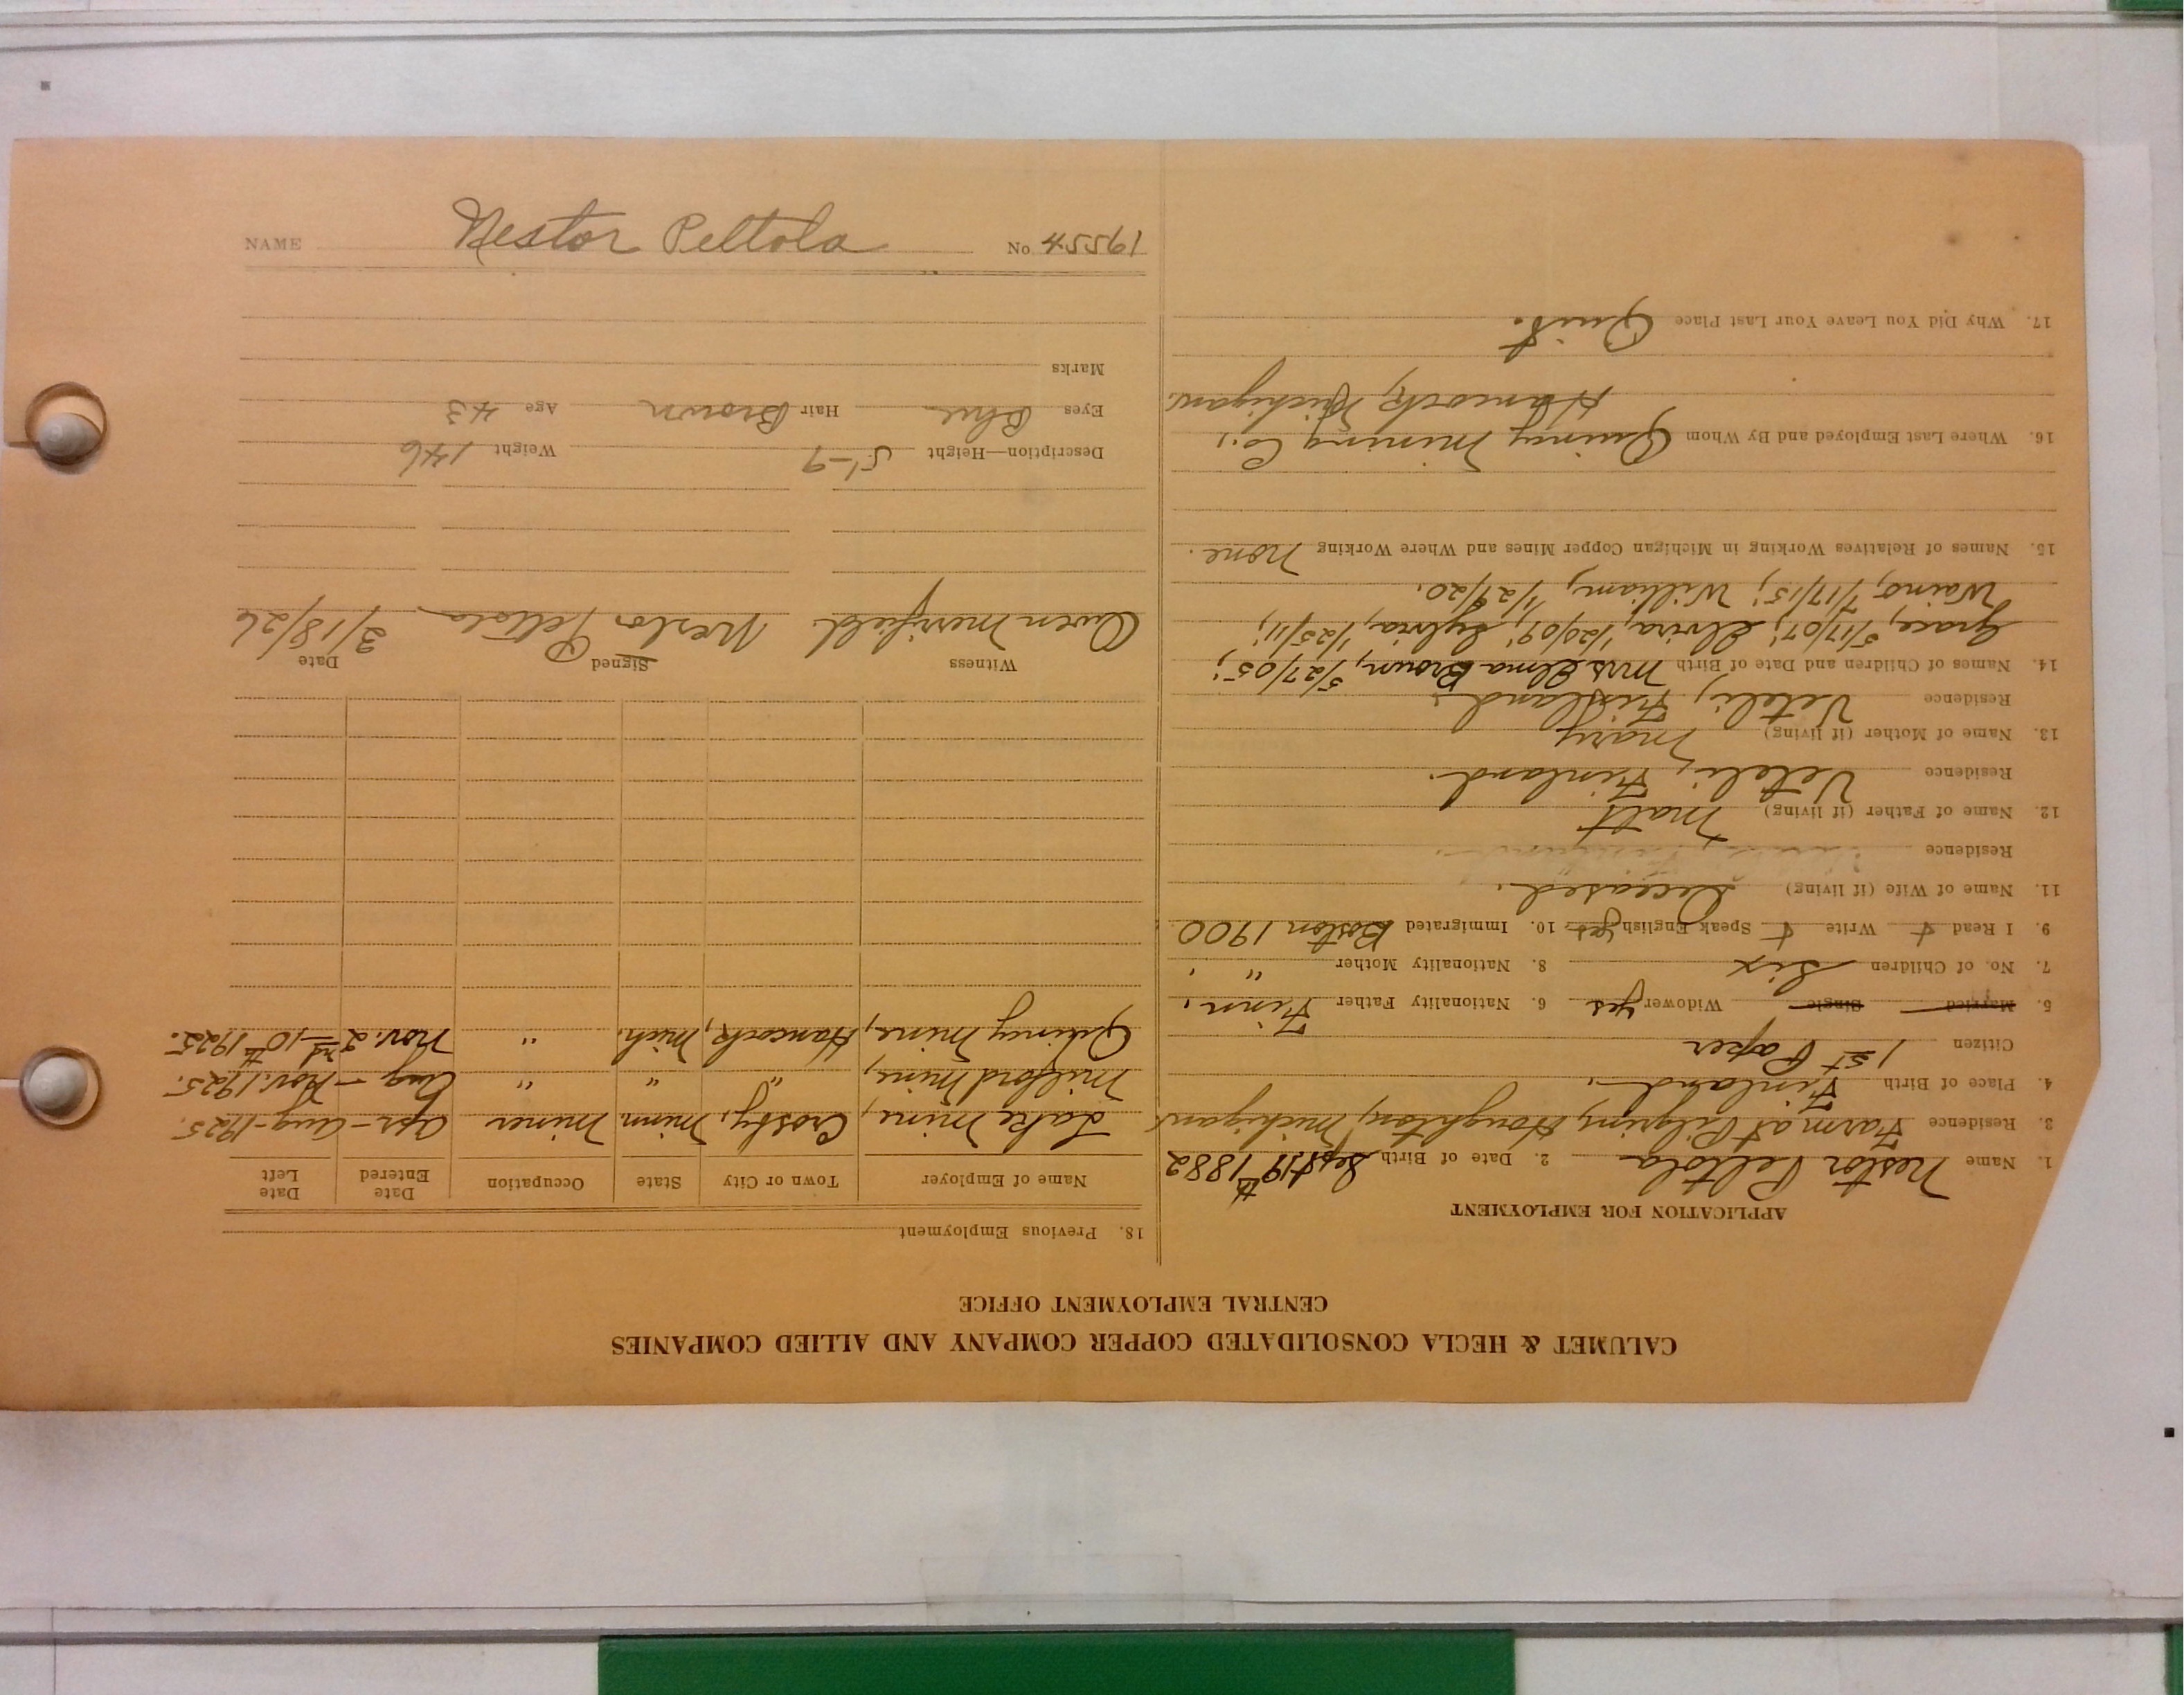 CALUMET & HECLA CONSOLIDATED COPPER COMPANY AND ALLIED COMPANIES
CENTRAL EMPLOYMENT OFFICE
APPLICATION FOR EMPLOYMENT
1. Name Nestor Peltola 2. Date of Birth Sept 19th 1882
3. Residence Farm at Pilgrim, Houghton, Michigan
4. Place of Birth Finland.
Citizen 1st Paper
5. Married Single Widower yes 6. Nationality Father Finn.
7. No. of Children Six 8. Nationality Mother " .
9. I Read + Write + Speak English yes 10. Immigrated Boston 1900
11. Name of Wife (if living) Deceased.
Residence
12. Name of Father (if living) Matt
Residence Veteli, Finland.
13. Name of Mother (if living) Mary
Residence Veteli, Finland.
14. Names of Children and Date of Birth Mrs Elma Brown, 5/27/05;
Grace, 5/17/07; Elvira, 1/20/09; Sylvia, 1/25/11;
Waino, 7/17/15; William, 1/29/20.
15. Names of Relatives Working in Michigan Copper Mines and Where Working None.
16. Where Last Employed and By Whom Quincy Mining Co.,
Hancock, Michigan.
17. Why Did You Leave Your Last Place Quit.
18. Previous Employment
Name of Employer Town or City State Occupation Date Entered Date Left
Lake Mine, Crosby, Minn Miner Apr - Aug - 1925.
Milford Mine, " " " Aug - Nov. 1925.
Quincy Mine, Hancock, Mich. " Nov. 2nd - 10th 1925.
Witness Signed Date
Owen Merrifield. Nestor Peltola 3/18/26
Description—Height 5'-9 Weight 146
Eyes Blue Hair Brown Age 43
Marks
NAME Nestor Peltola No 19554